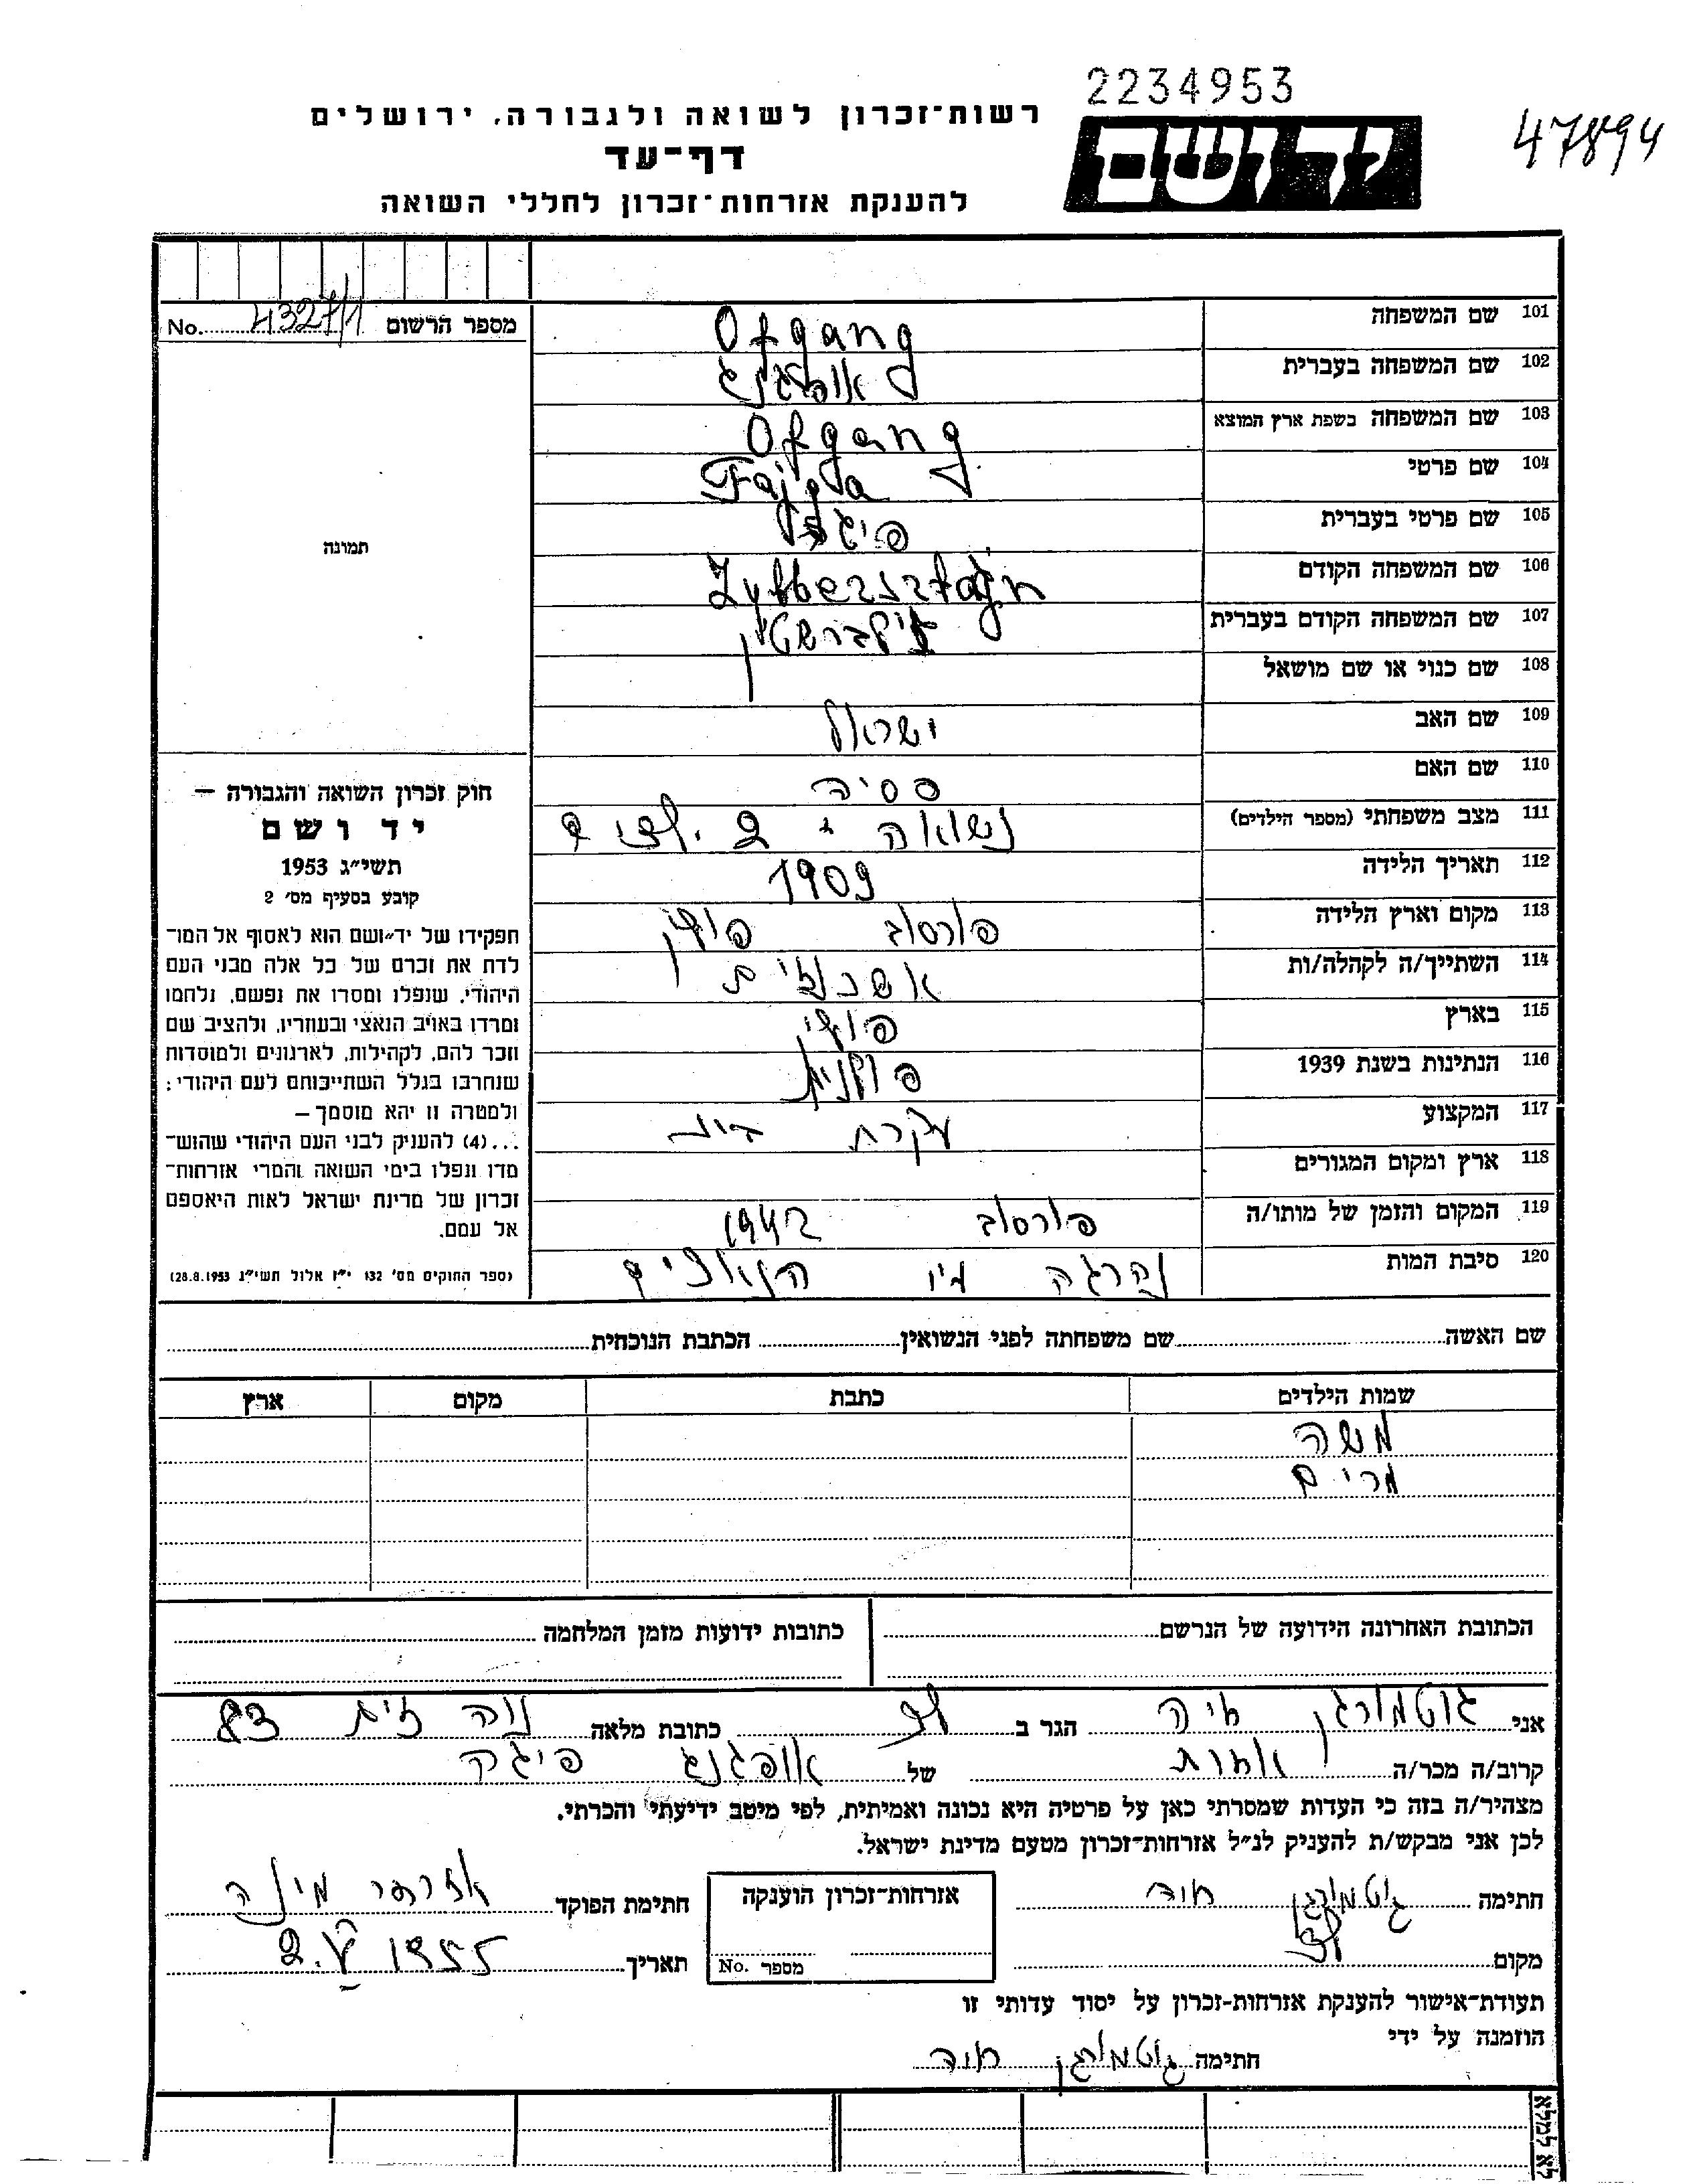 2234953
47894
רשות־זכרון לשואה ולגבורה, ירושלים
ידושם
דף־עד
להענקת אזרחות־זכרון לחללי השואה
מספר הרשום No. 4327/1
תמונה
101 שם המשפחה Ofgang
102 שם המשפחה בעברית אופגנג
103 שם המשפחה בשפת ארץ המוצא Ofgang
104 שם פרטי Fajga
105 שם פרטי בעברית פיגה
106 שם המשפחה הקודם Zylbersztajn
107 שם המשפחה הקודם בעברית זילברשטיין
108 שם כנוי או שם מושאל
109 שם האב ישראל
110 שם האם פסיה
111 מצב משפחתי (מספר הילדים) נשואה + 2 ילדים
112 תאריך הלידה 1909
113 מקום וארץ הלידה פורסוב פולין
114 השתייך/ה לקהלה/ות אשכנזית
115 בארץ פולין
116 הנתינות בשנת 1939 פולנית
117 המקצוע עקרת בית
118 ארץ ומקום המגורים
119 המקום והזמן של מותו/ה פורסוב 1942
120 סיבת המות נהרגה ע״י הנאצים
חוק זכרון השואה והגבורה —
יד ושם
תשי״ג 1953
קובע בסעיף מס׳ 2
תפקידו של יד־ושם הוא לאסוף אל המו־
לדת את זכרם של כל אלה מבני העם
היהודי, שנפלו ומסרו את נפשם, נלחמו
ומרדו באויב הנאצי ובעוזריו, ולהציב שם
וזכר להם, לקהילות, לארגונים ולמוסדות
שנחרבו בגלל השתייכותם לעם היהודי;
ולמטרה זו יהא מוסמך —
...(4) להעניק לבני העם היהודי שהוש־
מדו ונפלו בימי השואה והמרי אזרחות־
זכרון של מדינת ישראל לאות היאספם
אל עמם.
(ספר החוקים מס׳ 132 י״ז אלול תשי״ג 28.8.1953)
שם האשה שם משפחתה לפני הנשואין הכתבת הנוכחית
שמות הילדים כתבת מקום ארץ
משה
מרים
הכתובת האחרונה הידועה של הנרשם כתובות ידועות מזמן המלחמה
אני גוטמורגן חיה הגר ב לוד כתובת מלאה נוה זית 83
קרוב/ה מכר/ה אחות של אופגנג פיגה
מצהיר/ה בזה כי העדות שמסרתי כאן על פרטיה היא נכונה ואמיתית, לפי מיטב ידיעתי והכרתי.
לכן אני מבקש/ת להעניק לנ״ל אזרחות־זכרון מטעם מדינת ישראל.
חתימה גוטמורגן חיה אזרחות־זכרון הוענקה חתימת הפוקד
מקום לוד מספר No. תאריך 2.V 1955
תעודת־אישור להענקת אזרחות־זכרון על יסוד עדותי זו
הוזמנה על ידי
חתימה גוטמורגן חיה
לא למלא